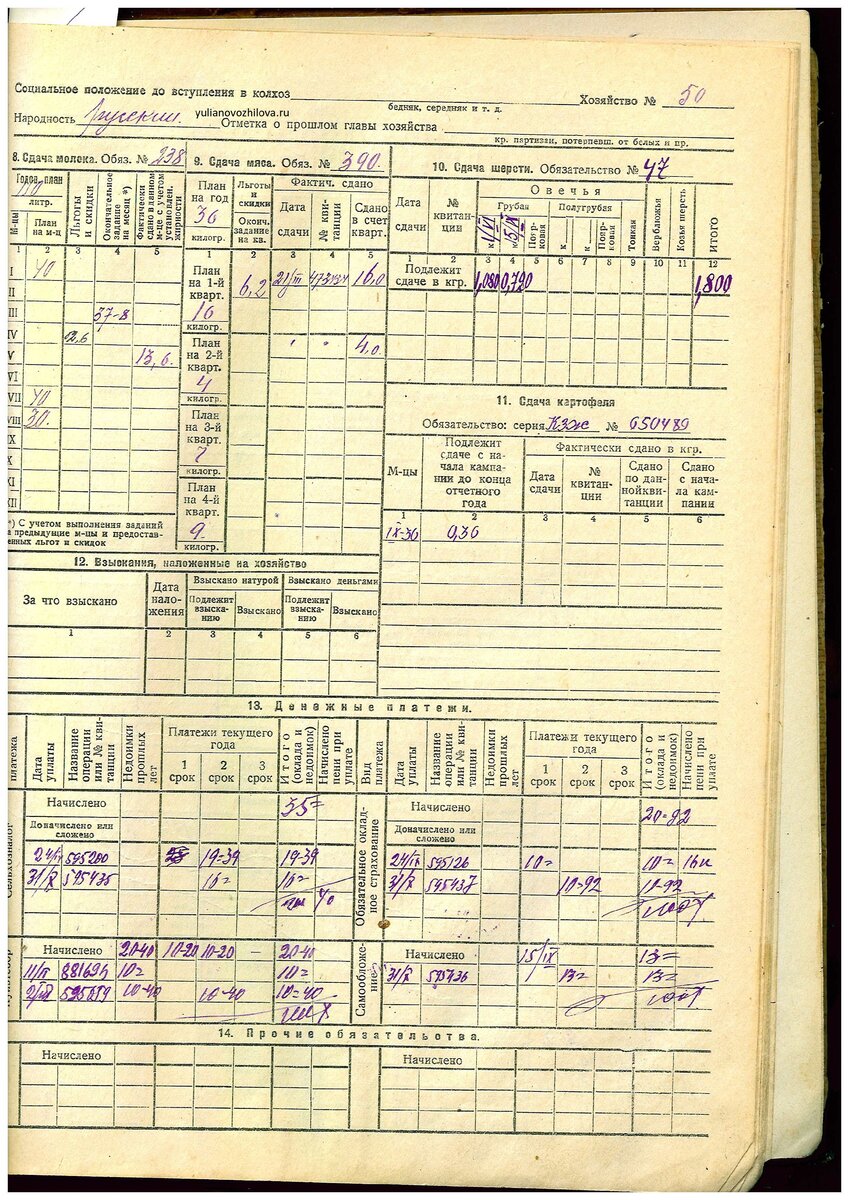 Социальное положение до вступления в колхоз
бедняк, середняк и т. д.
Хозяйство № 50
yulianovozhilova.ru
Народность русский. Отметка о прошлом главы хозяйства
кр. партизан, потерпевш. от белых и пр.
8. Сдача молока. Обяз. № 238
План на м-ц
литр.
М-цы
Льготы и скидки
Окончательное задание на месяц *)
Фактически сдано в данном м-це с учетом установлен. жирности
1 2 3 4 5
I 40
II
III 37-8
IV 2,6
V 13,6.
VI
VII 40
VIII 30.
IX
X
XI
XII
*) С учетом выполнения заданий
предыдущие м-цы и предостав-
енных льгот и скидок
9. Сдача мяса. Обяз. № 390.
План на год 36 килогр.
Льготы и скидки
Оконч. задание на кв.
Фактич. сдано
Дата сдачи
№ кви-танции
Сдано в счет кварт.
1 2 3 4 5
План на 1-й кварт. 16 килогр.
6,2 16,0
План на 2-й кварт. 4 килогр.
4,0.
План на 3-й кварт. 7 килогр.
План на 4-й кварт. 9. килогр.
10. Сдача шерсти. Обязательство № 47
Дата сдачи
№ квитан-ции
Овечья
Грубая
Полугрубая
Пояр-ковая
к
к
Пояр-ковья
Тонкая
Верблюжья
Козья шерсть
ИТОГО
1 2 3 4 5 6 7 8 9 10 11 12
Подлежит сдаче в кгр. 1,080 0,720 1,800
11. Сдача картофеля
Обязательство: серия Кзж № 650489
М-цы
Подлежит сдаче с на-чала кампа-нии до конца отчетного года
Фактически сдано в кгр.
Дата сдачи
№ квитан-ции
Сдано по дан-нойкви-танции
Сдано с нача-ла кам-пании
1 2 3 4 5 6
IX-36 0,36
12. Взыскания, наложенные на хозяйство
За что взыскано
Дата нало-жения
Взыскано натурой
Взыскано деньгами
Подлежит взыска-нию
Взыскано
Подлежит взыска-нию
Взыскано
1 2 3 4 5 6
13. Денежные платежи.
платежа
Дата уплаты
Название операции или № кви-танции
Недоимки прошлых лет
Платежи текущего года
1 срок
2 срок
3 срок
Итого (оклада и недоимок)
Начислено пени при уплате
Вид платежа
Дата уплаты
Название операции или № кви-танции
Недоимки прошлых лет
Платежи текущего года
1 срок
2 срок
3 срок
Итого (оклада и недоимок)
Начислено пени при уплате
Сельхозналог
Начислено 35=
Доначислено или сложено
595200 19=39 19-39
31/X 595435 16= 16=
Обязательное оклад-ное страхование
Начислено 20=92
Доначислено или сложено
595126 10= 10=
31/X 595437 10=92 10-92
Начислено 20-40 10-20 10-20 – 20-40
10= 10=
10-40 10-40 10=40
Самообложе-ние
Начислено 15/IX 13=
31/X 595436 13= 13=
14. Прочие обязательства.
Начислено
Начислено